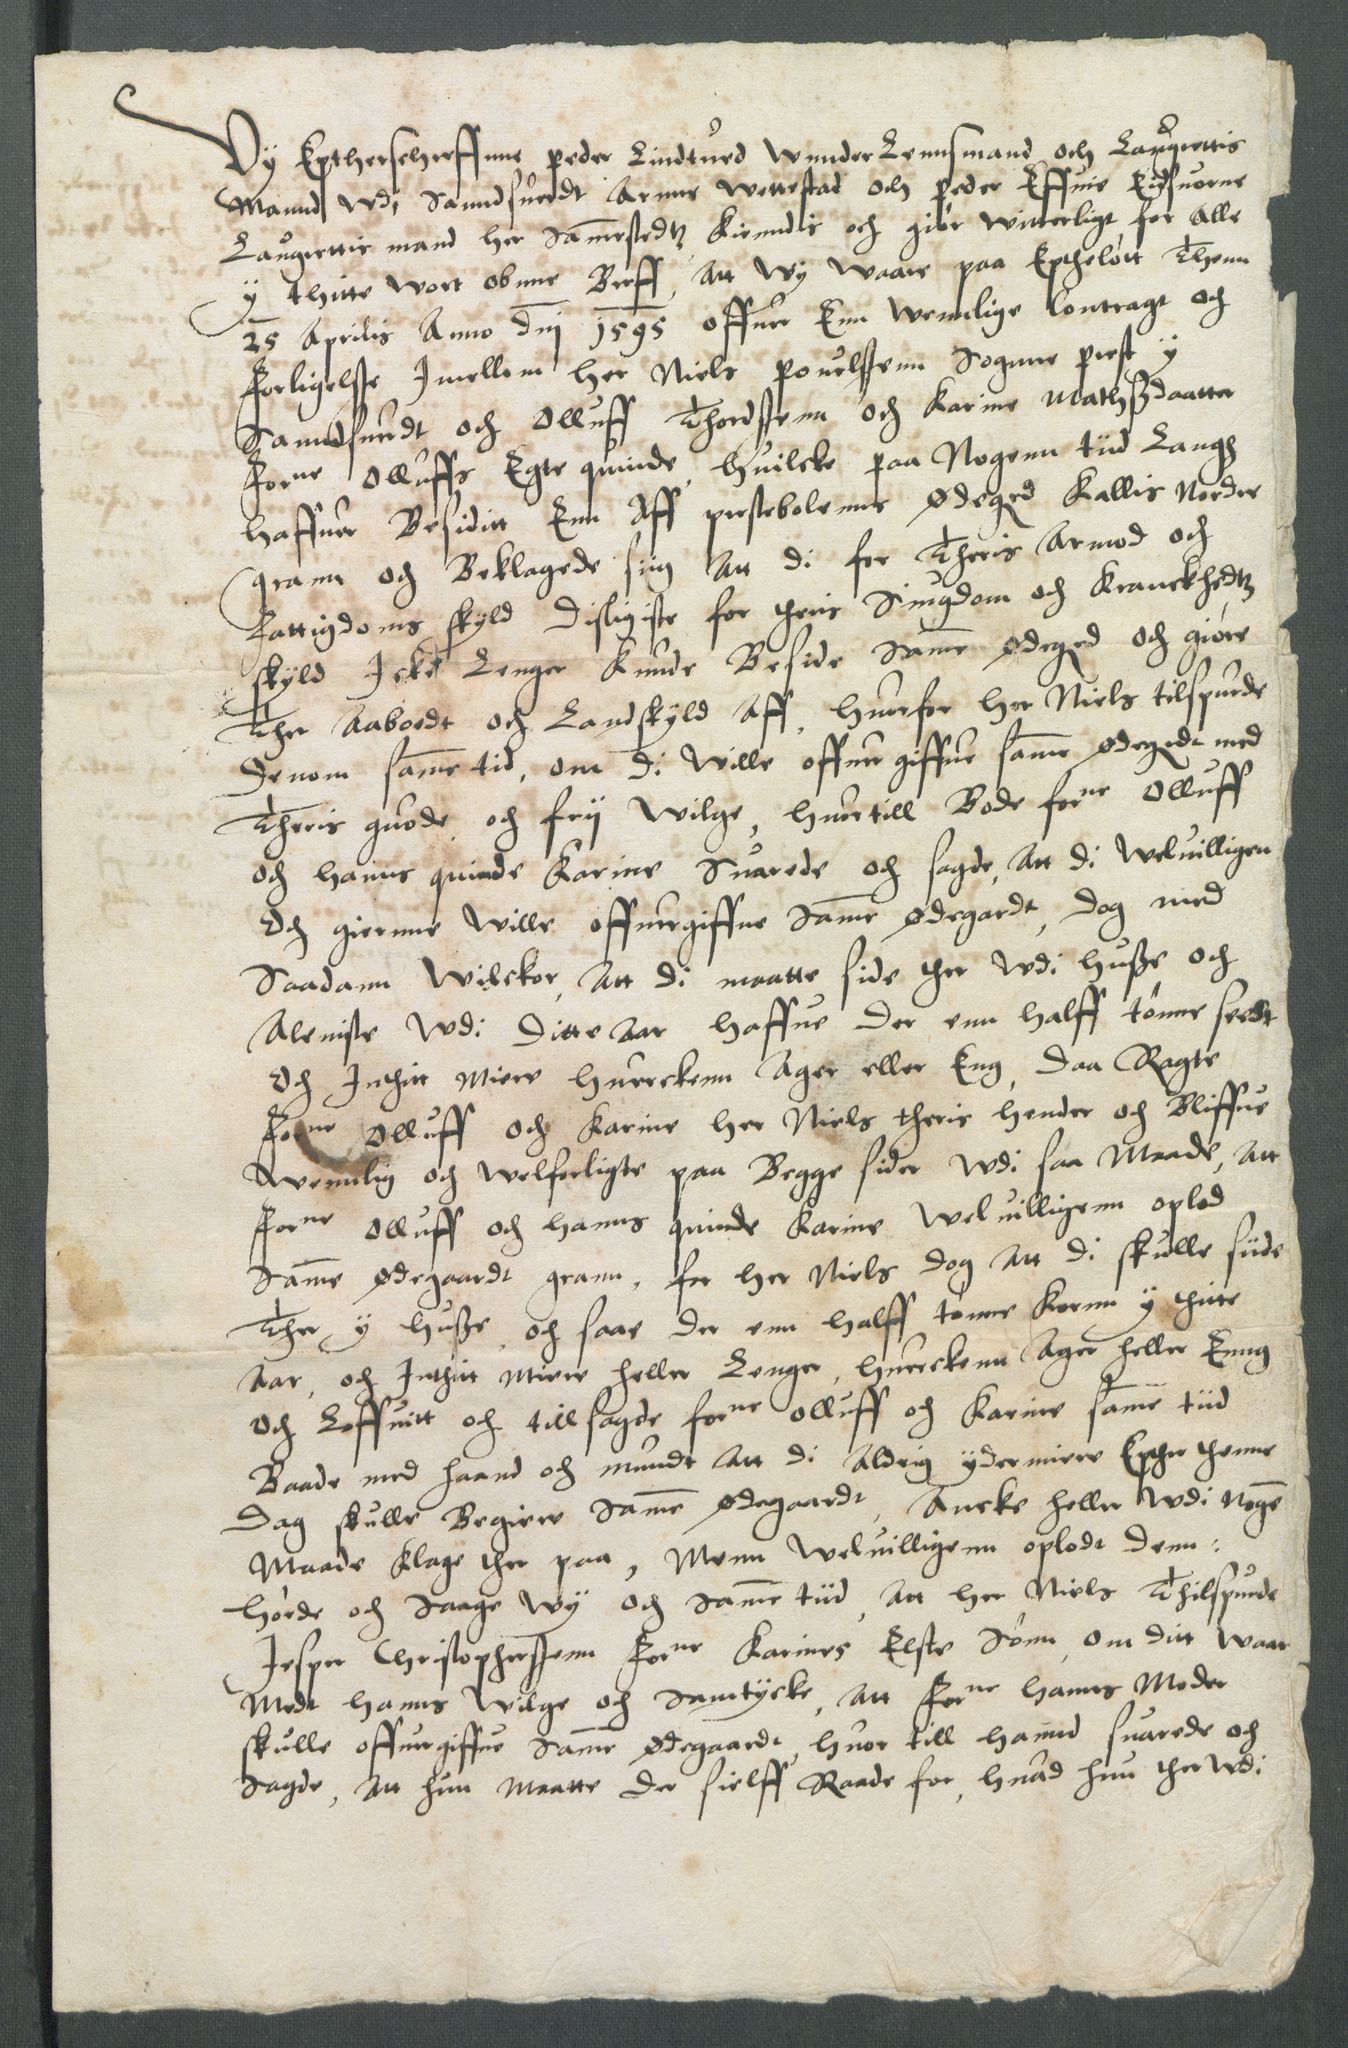 Wÿ Eptherschreffnne peder Lindtued Wnnder Lennsmand och Laugrettis
Mannd Wdj Sanndsuerdt Arnne Wettestad och peder Effuie Eidsuorne
Laugrettis mand her Sammestedtz Kiendis och giör Witterligt for Alle
ÿ thitte Wort obnne Breff, Att Wÿ Waare paa Epthelött Thenn
25 Aprilis Anno Dnj 1595 offuer Enn Wennlige Contragt och
Forligelsse Jmellom her Niels pouelssenn Sogne prest ÿ
Sanndsuerdt och Olluff Thordssenn och Karine Mathsdaatter
Forne Olluffs Egte quinde, huilcke paa Nogenn tiid Langh
haffuer Besiditt Enn Aff prestebolenns Ødegrd Kallis Nordre
grann och Beklagede siig Att di for Theris Armod och
Fattigdoms skyld disligiste for theris Siugdom och Kranckhedtz
skyld Icke Lenger kunde Beside Samme Ødegrd och giöre
Ther Aaboedt och Landskÿld Aff, huorfor her Niels tilspurde
Denom samme tid, om di Wille offuer giffue samme Ødegrdt med
Theris guode och frij Wilge, huortill Bode forne Olluff
och hanns quinde Karine Suarede och sagde, Att di Weluilligen
Och giernne Wille offuergiffue Samme Ødegardt, dog med
Saadann Wilckor, Att di maatte side ther Wdi huße och
Aleniste Wdi Ditte Aar haffue der enn halff tönne sædt
Och Inthit Miere huerckenn Ager eller Eng, Daa Ragte
Forne Olluff och Karine her Niels theris hender och Bliffue
Wennlig och Welforligte paa Begge sider Wdi saa Maade, Att
Forne Olluff och hanns quinde Karine Weluilligenn oplod
Samme Ødegaardt grann, for her Niels dog Att di skulle siide
Ther ÿ huße, och saae der enn halff tönne Kornn ÿ thitte
Aar, och Inthit Miere heller Lenger, huerckenn Ager heller Enng
Och Loffuitt och tillsagde forne Olluff och Karine samme tiid
Baade med haand och mundt Att di Aldrig ÿdermiere Epther thenne
Dag skulle Begiere Samme Ødegaardt, Ancke heller Wdi Nogen
Maade Klage ther paa, Menn Weluilligenn oplodt denn:
hörde och Saage Wÿ och Samme tiid, Att her Niels Thilspurde
Jesper Christopherssenn Forne Karines Elste Sönn, om ditt Waar
Medt hanns Wilge och Samtÿcke, Att Forne hanns Moder
skulle offuergiffue Samme Ødegaardt, huor till hannd suarede och
Sagde, Att hun Maatte der sielff Raade for, huad hun ther Wdi